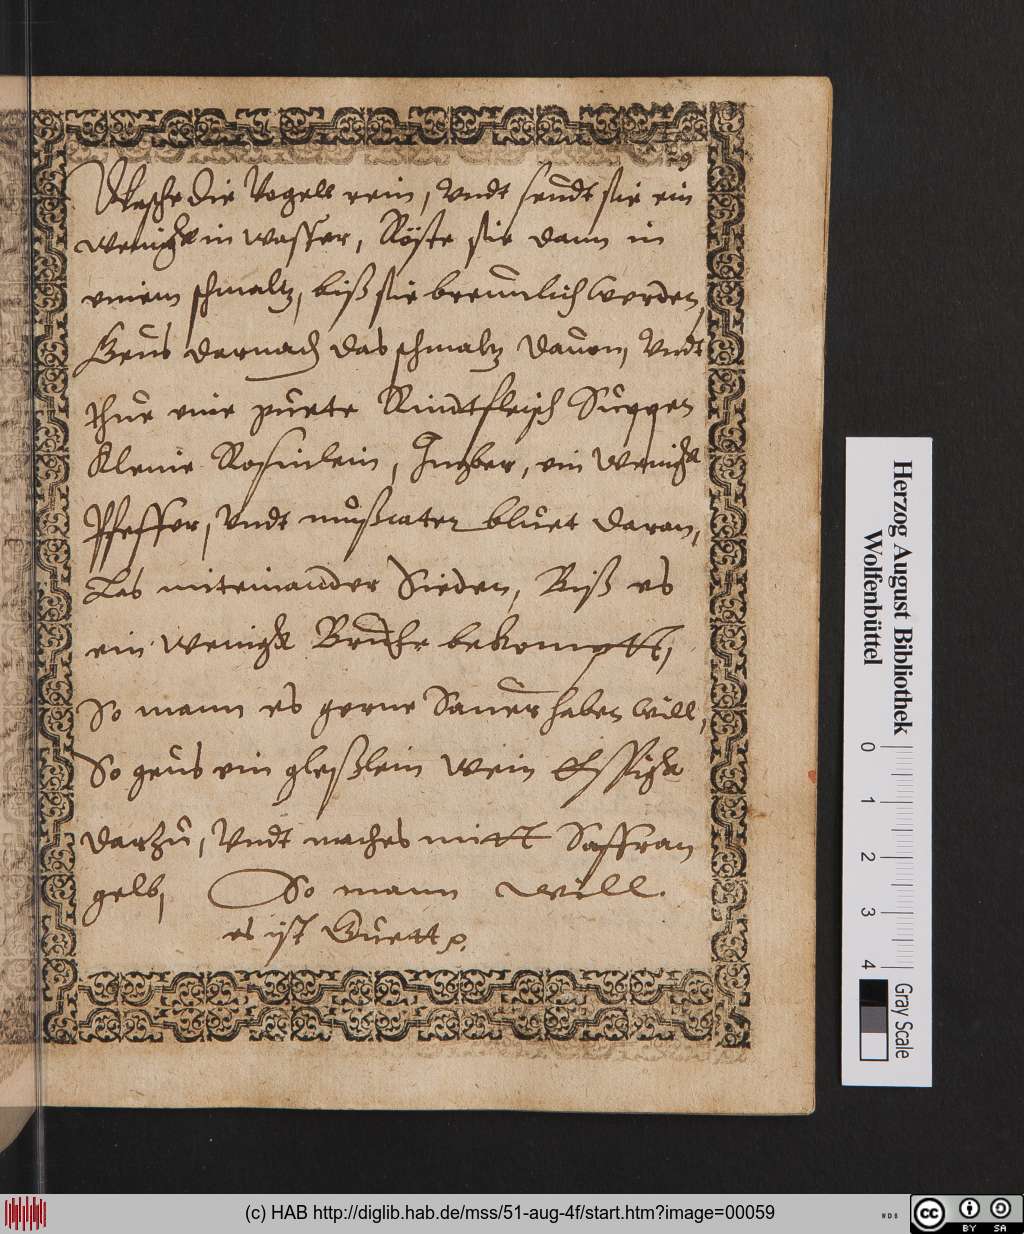 29
Wasche die Vogell rein, Vndt seudt sie ein
wenigk in wasser, Röste sie dann in
einem schmaltz, biß sie breunlich werden,
Geus darnach das schmaltz dauon, Vndt
thue eine guete Rindtfleisch Suppen
Kleine Rosinlein, Ingber, ein wenigk
Pfeffer, Vndt mußcaten bluet daran,
Las miteinander Sieden, Biß es
ein wenigk Bruhe bekomptt,
So mann es gerne Sauer haben will,
So geus ein gleßlein Wein Essigk
darzu, Vndt maches mitt Saffran
gelb, So mann will.
es ist Guett
Herzog August Bibliothek
Wolfenbüttel
0 1 2 3 4
Gray Scale
(c) HAB http://diglib.hab.de/mss/51-aug-4f/start.htm?image=00059
WDB
cc BY SA